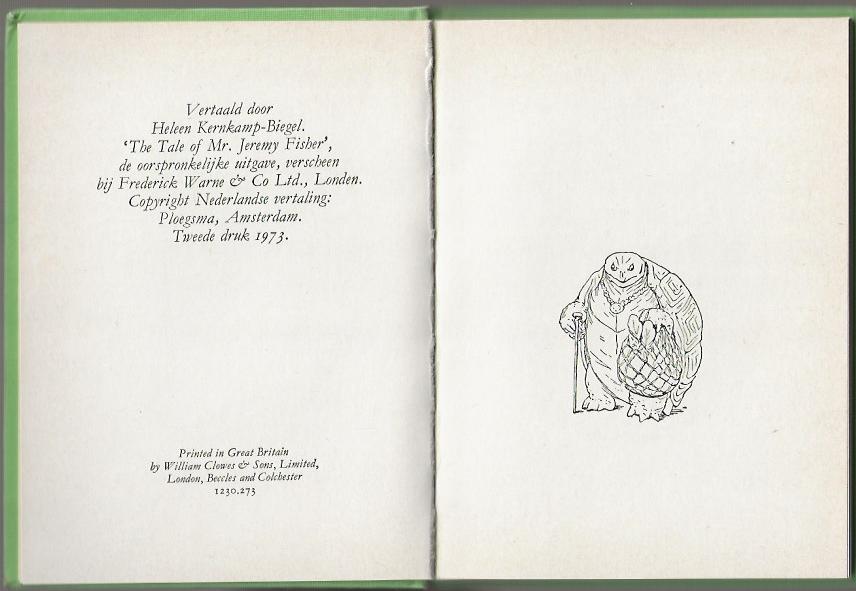 Vertaald door
Heleen Kernkamp-Biegel.
'The Tale of Mr. Jeremy Fisher',
de oorspronkelijke uitgave, verscheen
bij Frederick Warne & Co Ltd., Londen.
Copyright Nederlandse vertaling:
Ploegsma, Amsterdam.
Tweede druk 1973.
Printed in Great Britain
by William Clowes & Sons, Limited,
London, Beccles and Colchester
1230.273